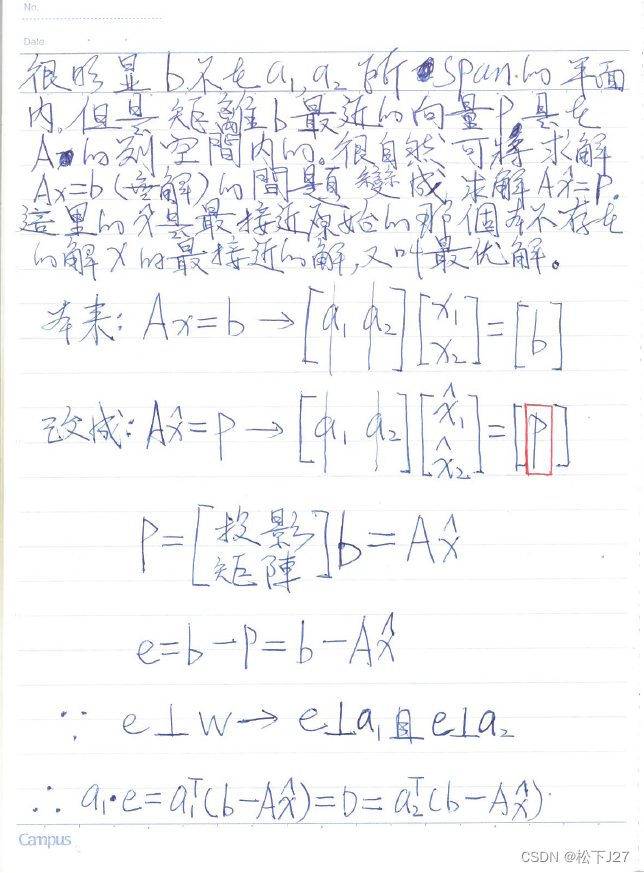 No.
Date
很明显 b不在 a₁,a₂ 所 span.的 平面
内,但是 矩離b最近的向量P,是在
A 的列空間内的。很自然 可將 求解
Ax=b (無解)的問題 變成 求解 Ax̂=P.
這里的x̂是最接近原始的那個本不存在
的解 X 的最接近的解,又叫最优解。
本来: Ax=b → [a₁ a₂] [x₁ x₂] = [b]
改成: Ax̂=P → [a₁ a₂] [x̂₁ x̂₂] = [P]
P=[投影矩陣]b=Ax̂
e=b-P=b-Ax̂
∵ e⊥W → e⊥a₁且e⊥a₂
∴ a₁•e=a₁ᵀ(b-Ax̂)=0=a₂ᵀ(b-Ax̂)
Campus
CSDN @松下J27